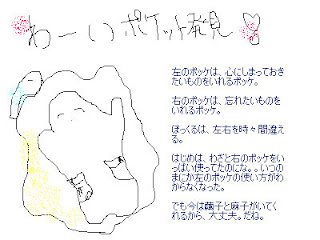 わーいポケット発見
左のポッケは、心にしまっておき
たいものをいれるポッケ。
右のポッケは、忘れたいものを
いれるポッケ。
ぽっくるは、左右を時々間違え
る。
はじめは、わざと右のポッケをい
っぱい使ってたのにな。。いつの
まにか左のポッケの使い方がわ
からなくなった。
でも今は繭子と麻子がいてく
れるから、大丈夫。だね。